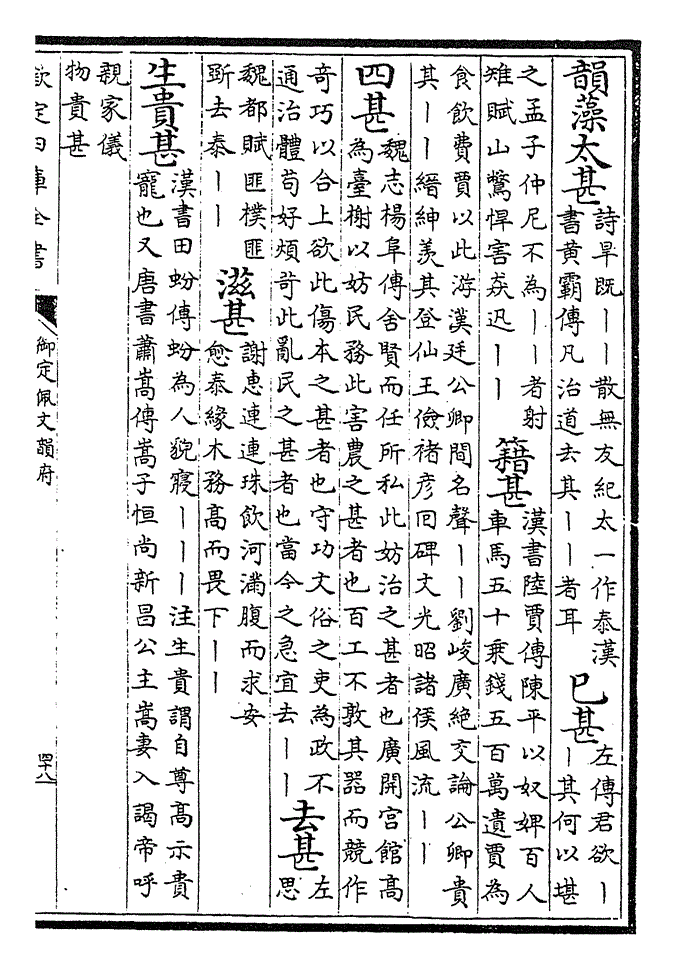 韻藻太甚
詩旱既丨丨散無友紀太一作泰漢
書黄霸傳凡治道去其丨丨者耳
已甚
左傳君欲丨
丨其何以堪
之孟子仲尼不為丨丨者射
雉賦山驚悍害猋迅丨丨
籍甚
漢書陸賈傳陳平以奴婢百人
車馬五十乘錢五百萬遺賈為
食飲費賈以此游漢廷公卿間名聲丨丨劉峻廣絶交論公卿貴
其丨丨縉紳羨其登仙王儉禇彦回碑文光昭諸侯風流丨丨
四甚
魏志楊阜傳舍賢而任所私此妨治之甚者也廣開宫館高
為臺榭以妨民務此害農之甚者也百工不敦其器而競作
奇巧以合上欲此傷本之甚者也守功文俗之吏為政不
通治體苟好煩苛此亂民之甚者也當今之急宜去丨丨
去甚
左
思
魏都賦匪樸匪
斵去泰丨丨
滋甚
謝恵連連珠飲河滿腹而求安
愈泰緣木務高而畏下丨丨
生貴甚
漢書田蚡傳蚡為人貌寢丨丨丨注生貴謂自尊高示貴
寵也又唐書蕭嵩傳嵩子恒尚新昌公主嵩妻入謁帝呼
親家儀
物貴甚
欽定四庫全書
御定佩文韻府
四十八